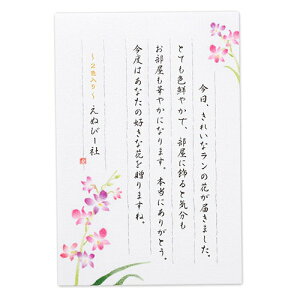 今日、きれいなランの花が届きました。
とても色鮮やかで、部屋に飾ると気分も
お部屋も華やかになります。本当にありがとう。
今度はあなたの好きな花を贈りますね。
～2色入り～
えぬびー社